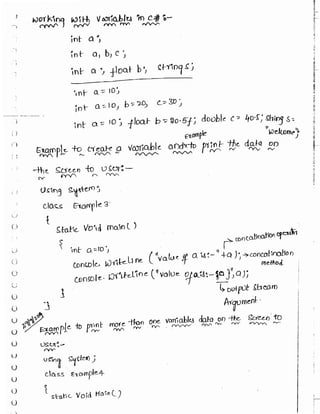 Working with Variables in C# :-
int a ;
int a, b, c ;
int a ; float b ; string s ;
int a = 10 ;
int a = 10, b = 20, c = 30 ;
int a = 10 ; float b = 20.5f ; double c = 40.5 ; string s =
"Welcome" ;
Example to create a variable and to print the data on
the Screen to user:-
Using System ;
class Example 3
{
Static Void main( )
{
int a=10 ;
concatination operator
Console. WriteLine ("value of a is:- "+a ); → concatination
method
Console. WriteLine ("value of a is:- {0}",a);
↳ output stream
Argument.
}
}
Example to print more than one variables data on the Screen to
user:-
using System ;
class Example4
{
static Void Main( )